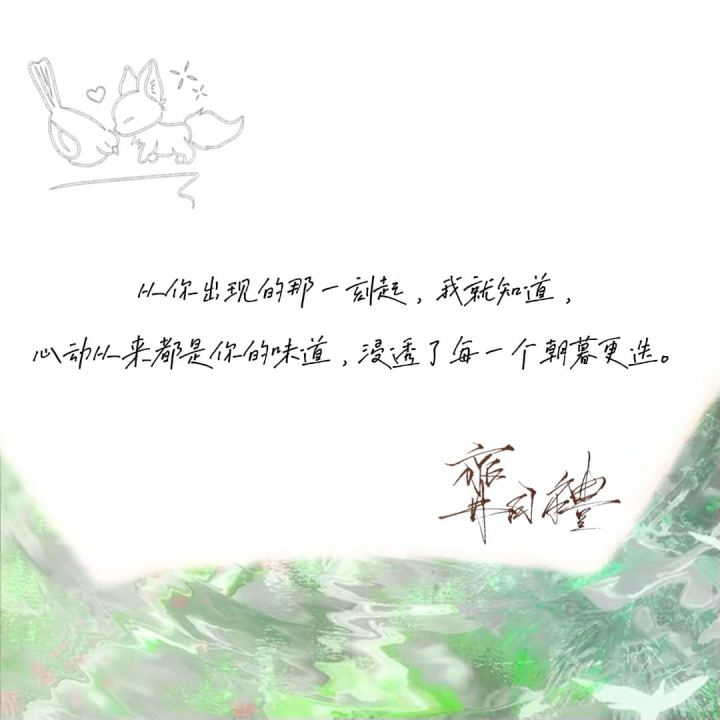 从你出现的那一刻起，我就知道，
心动从来都是你的味道，浸透了每一个朝暮更迭。
齊司禮